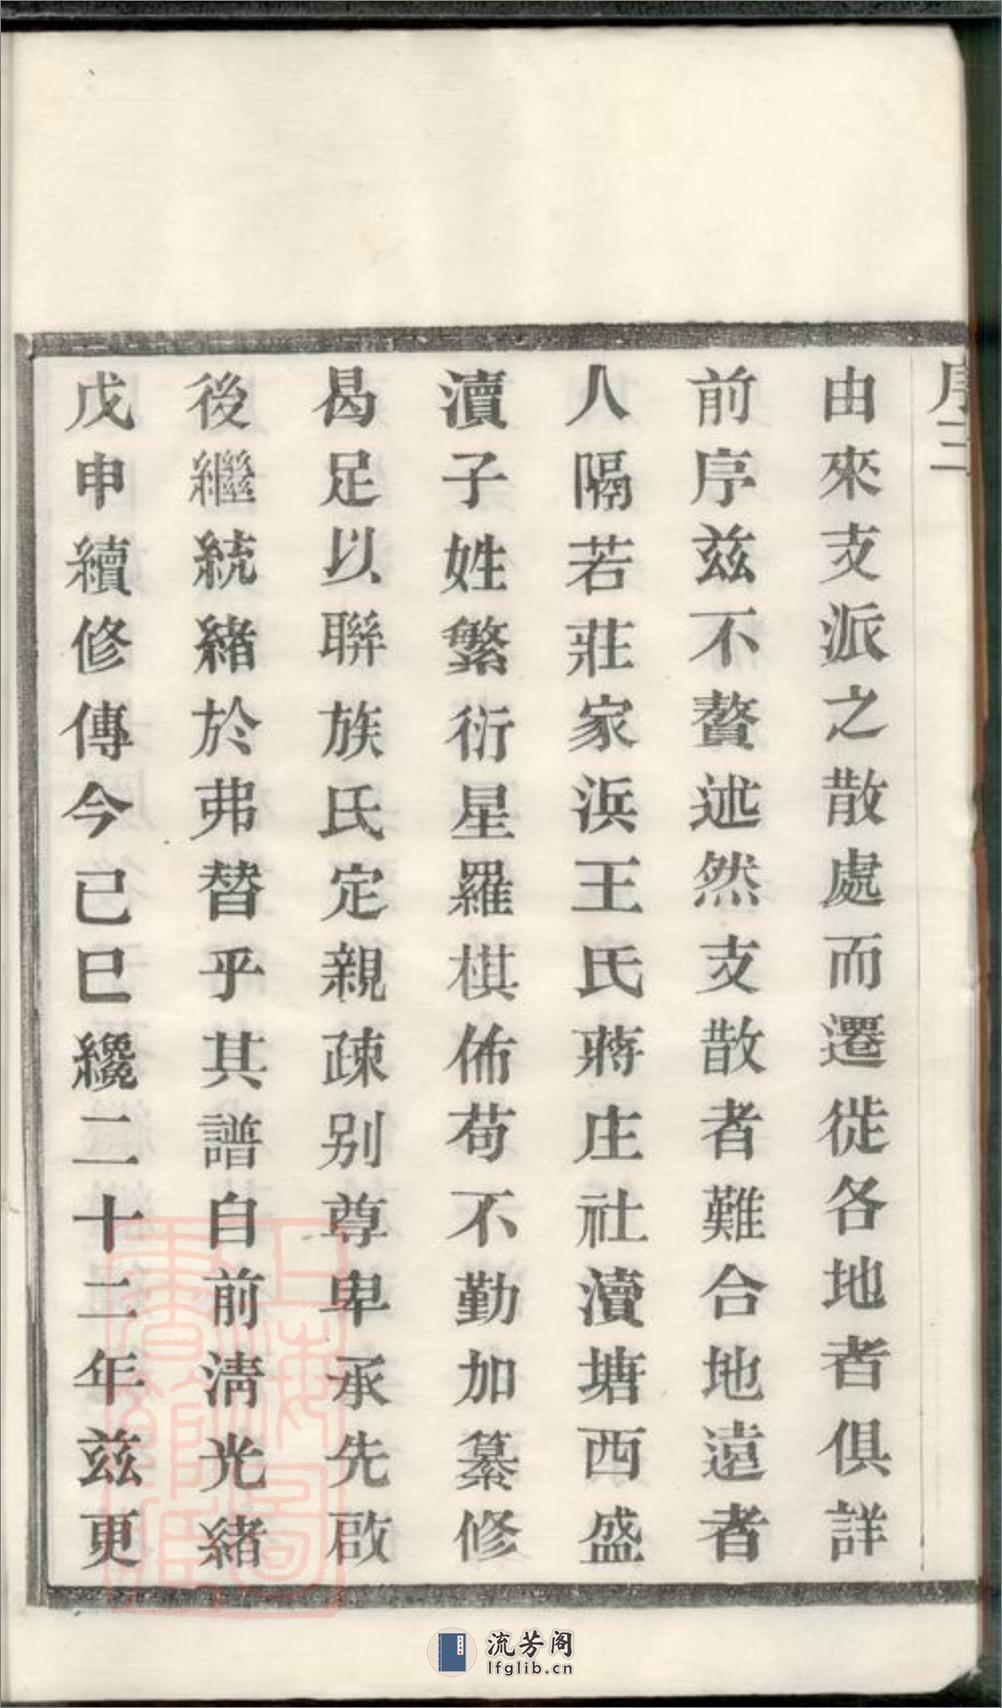 序三
由來支派之散處而遷徙各地者俱詳
前序茲不贅述然支散者難合地遠者
人隔若莊家浜王氏蔣庄社瀆塘西盛
瀆子姓繁衍星羅棋佈苟不勤加纂修
曷足以聯族氏定親疎别尊卑承先啟
後繼統緒於弗替乎其譜自前淸光緒
戊申續修傳今己巳纔二十二年茲更
上海圖書館藏
流芳阁
lfglib.cn